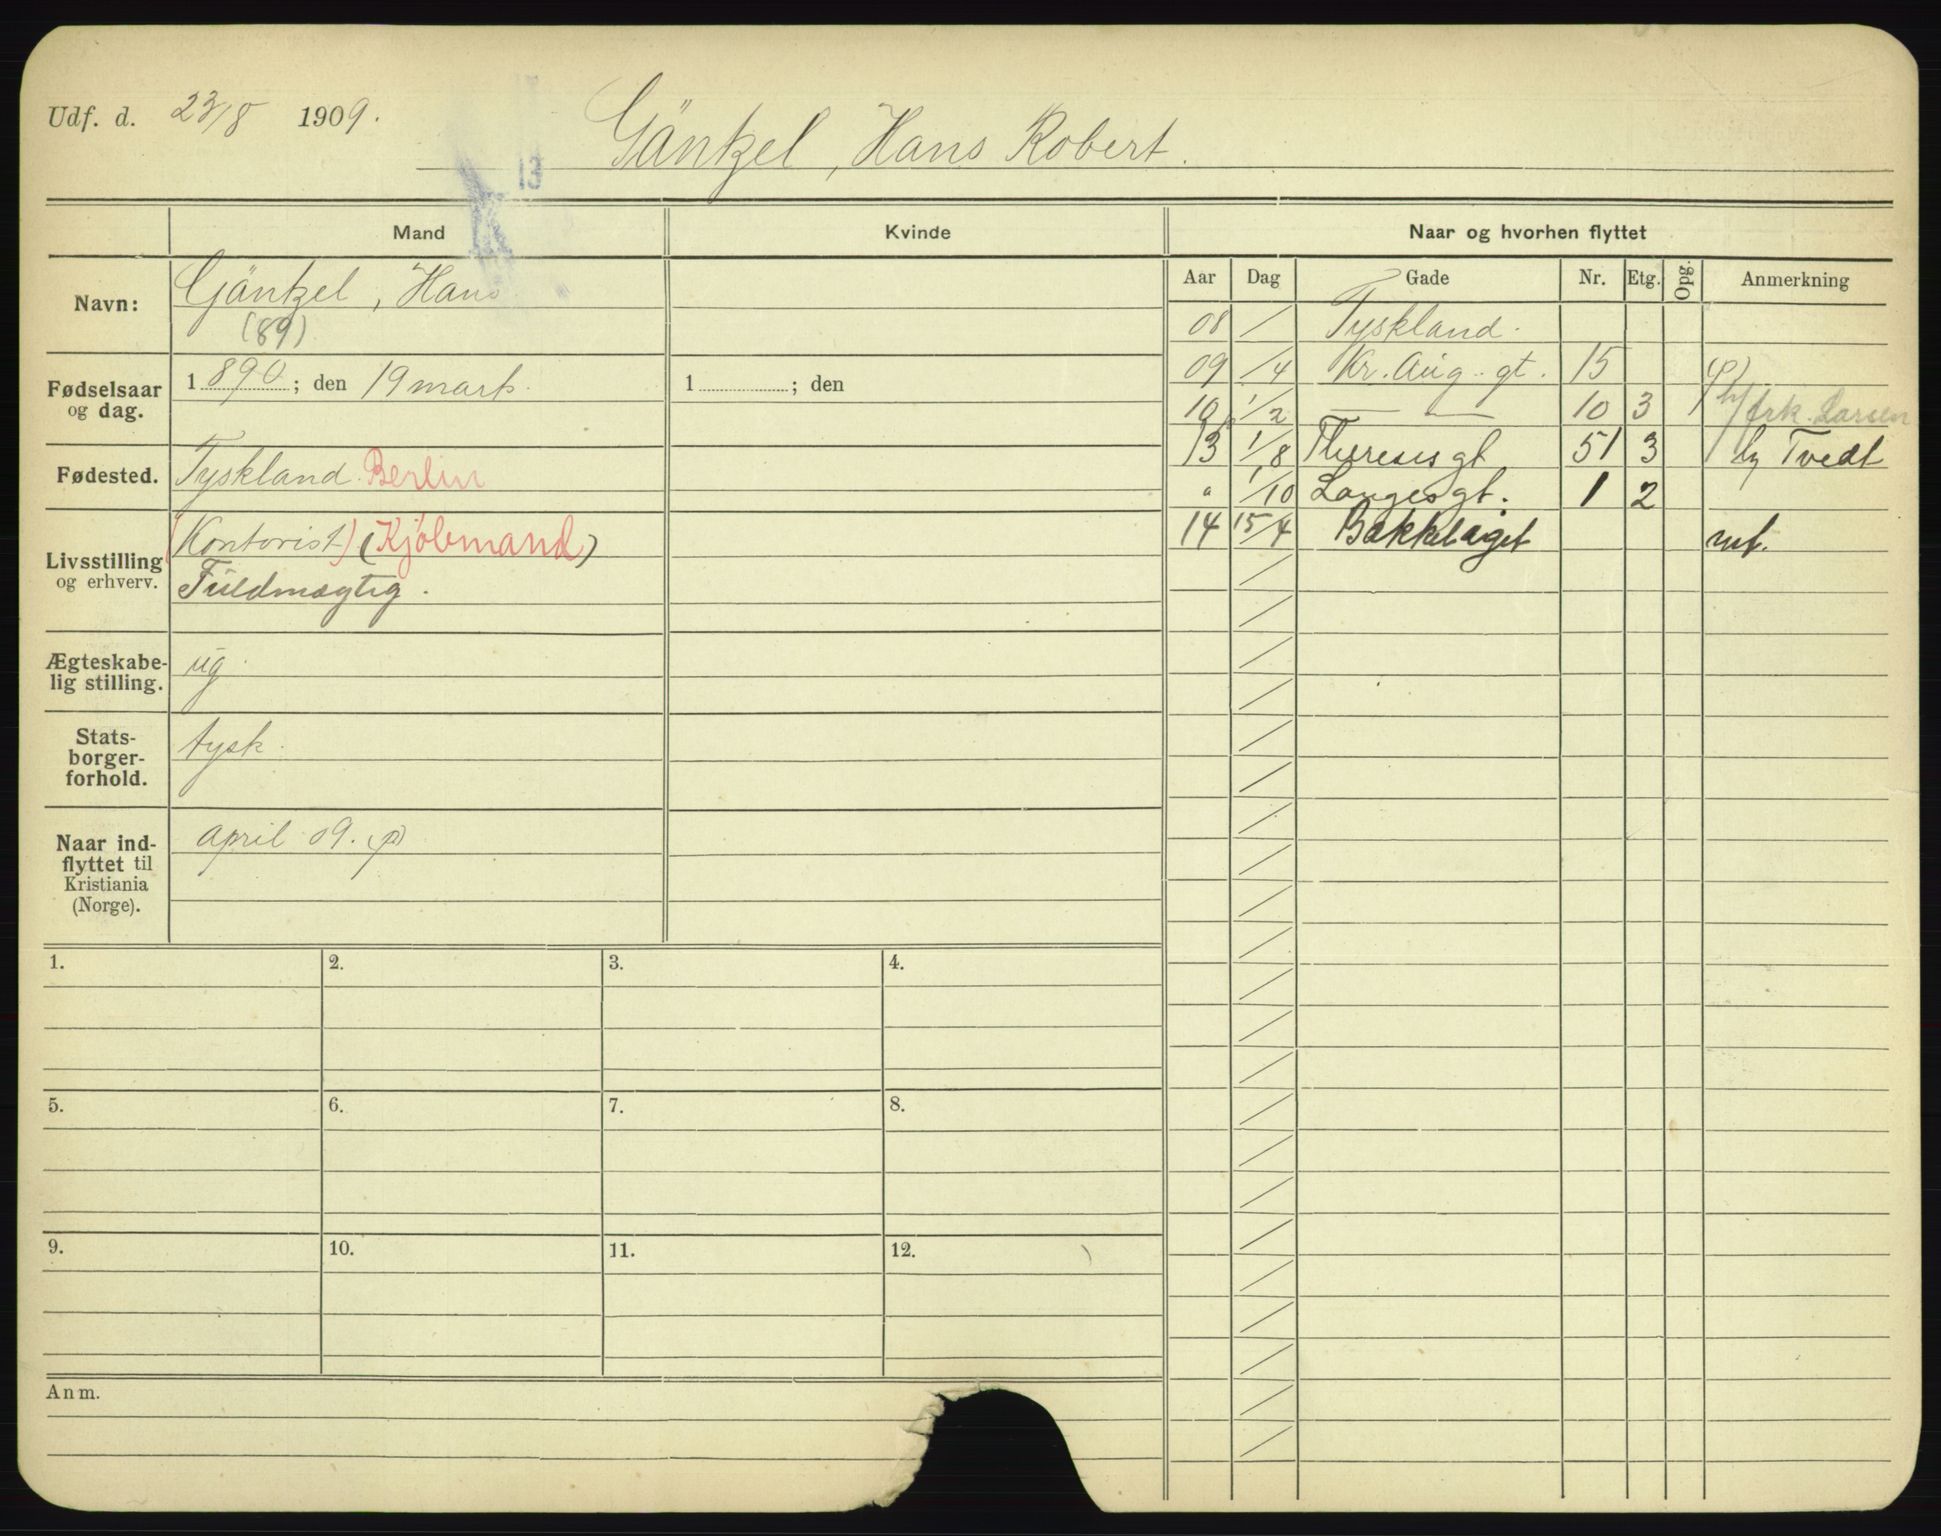 Udf. d. 23/8 1909.
Gänkel, Hans Robert.
13
Mand Kvinde Naar og hvorhen flyttet
Aar Dag Gade Nr. Etg. Opg. Anmerkning
Navn: Gänkel, Hans
(89)
Fødselsaar og dag. 1890; den 19 marts. 1 ; den
Fødested. Tyskland. Berlin
Livsstilling og erhverv. (Kontorist) (Kjøbmand)
Fuldmægtig.
Ægteskabe-
lig stilling. ug.
Stats-
borger-
forhold. tysk.
Naar ind-
flyttet til
Kristiania
(Norge). april 09. (p)
08 / Tyskland.
09 /4 Kr. Aug. gt. 15 (p)
10 1/2 — — 10 3 h/ frk. Larsen
13 1/8 Theresesgt 51 3 Tvedt
" 1/10 Langesgt. 1 2
14 15/4 Bækkelaget mf.
1. 2. 3. 4.
5. 6. 7. 8.
9. 10. 11. 12.
Anm.